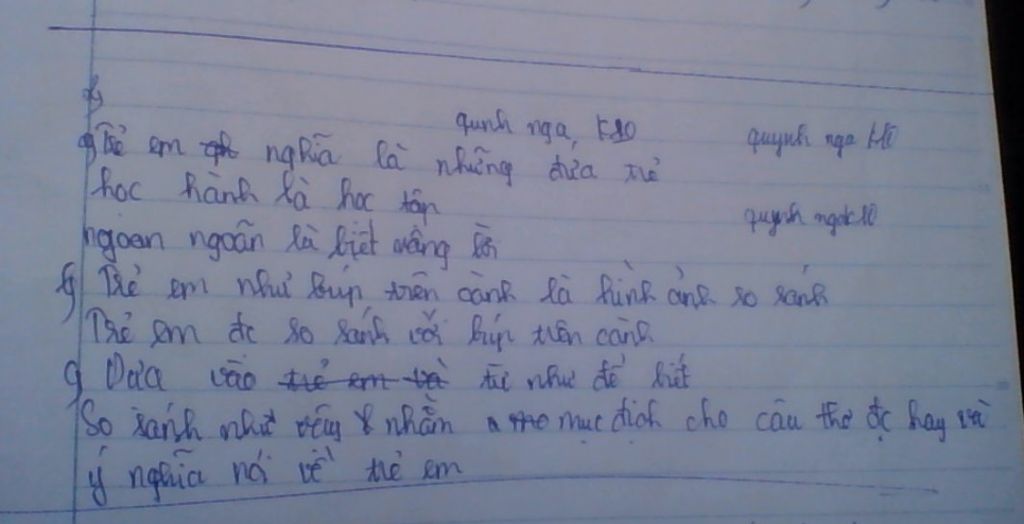 qunh nga, k10
quynh nga k10
a, Trẻ em nghĩa là những đứa trẻ
học hành là học tập
quynh nga k10
ngoan ngoãn là biết vâng lời
b, Trẻ em như búp trên cành là hình ảnh so sánh
Trẻ em đc so sánh với búp trên cành
c, Dựa vào trẻ em và từ như để biết
So sánh như vậy nhằm mục đích cho câu thơ đc hay và
ý nghĩa nói về trẻ em